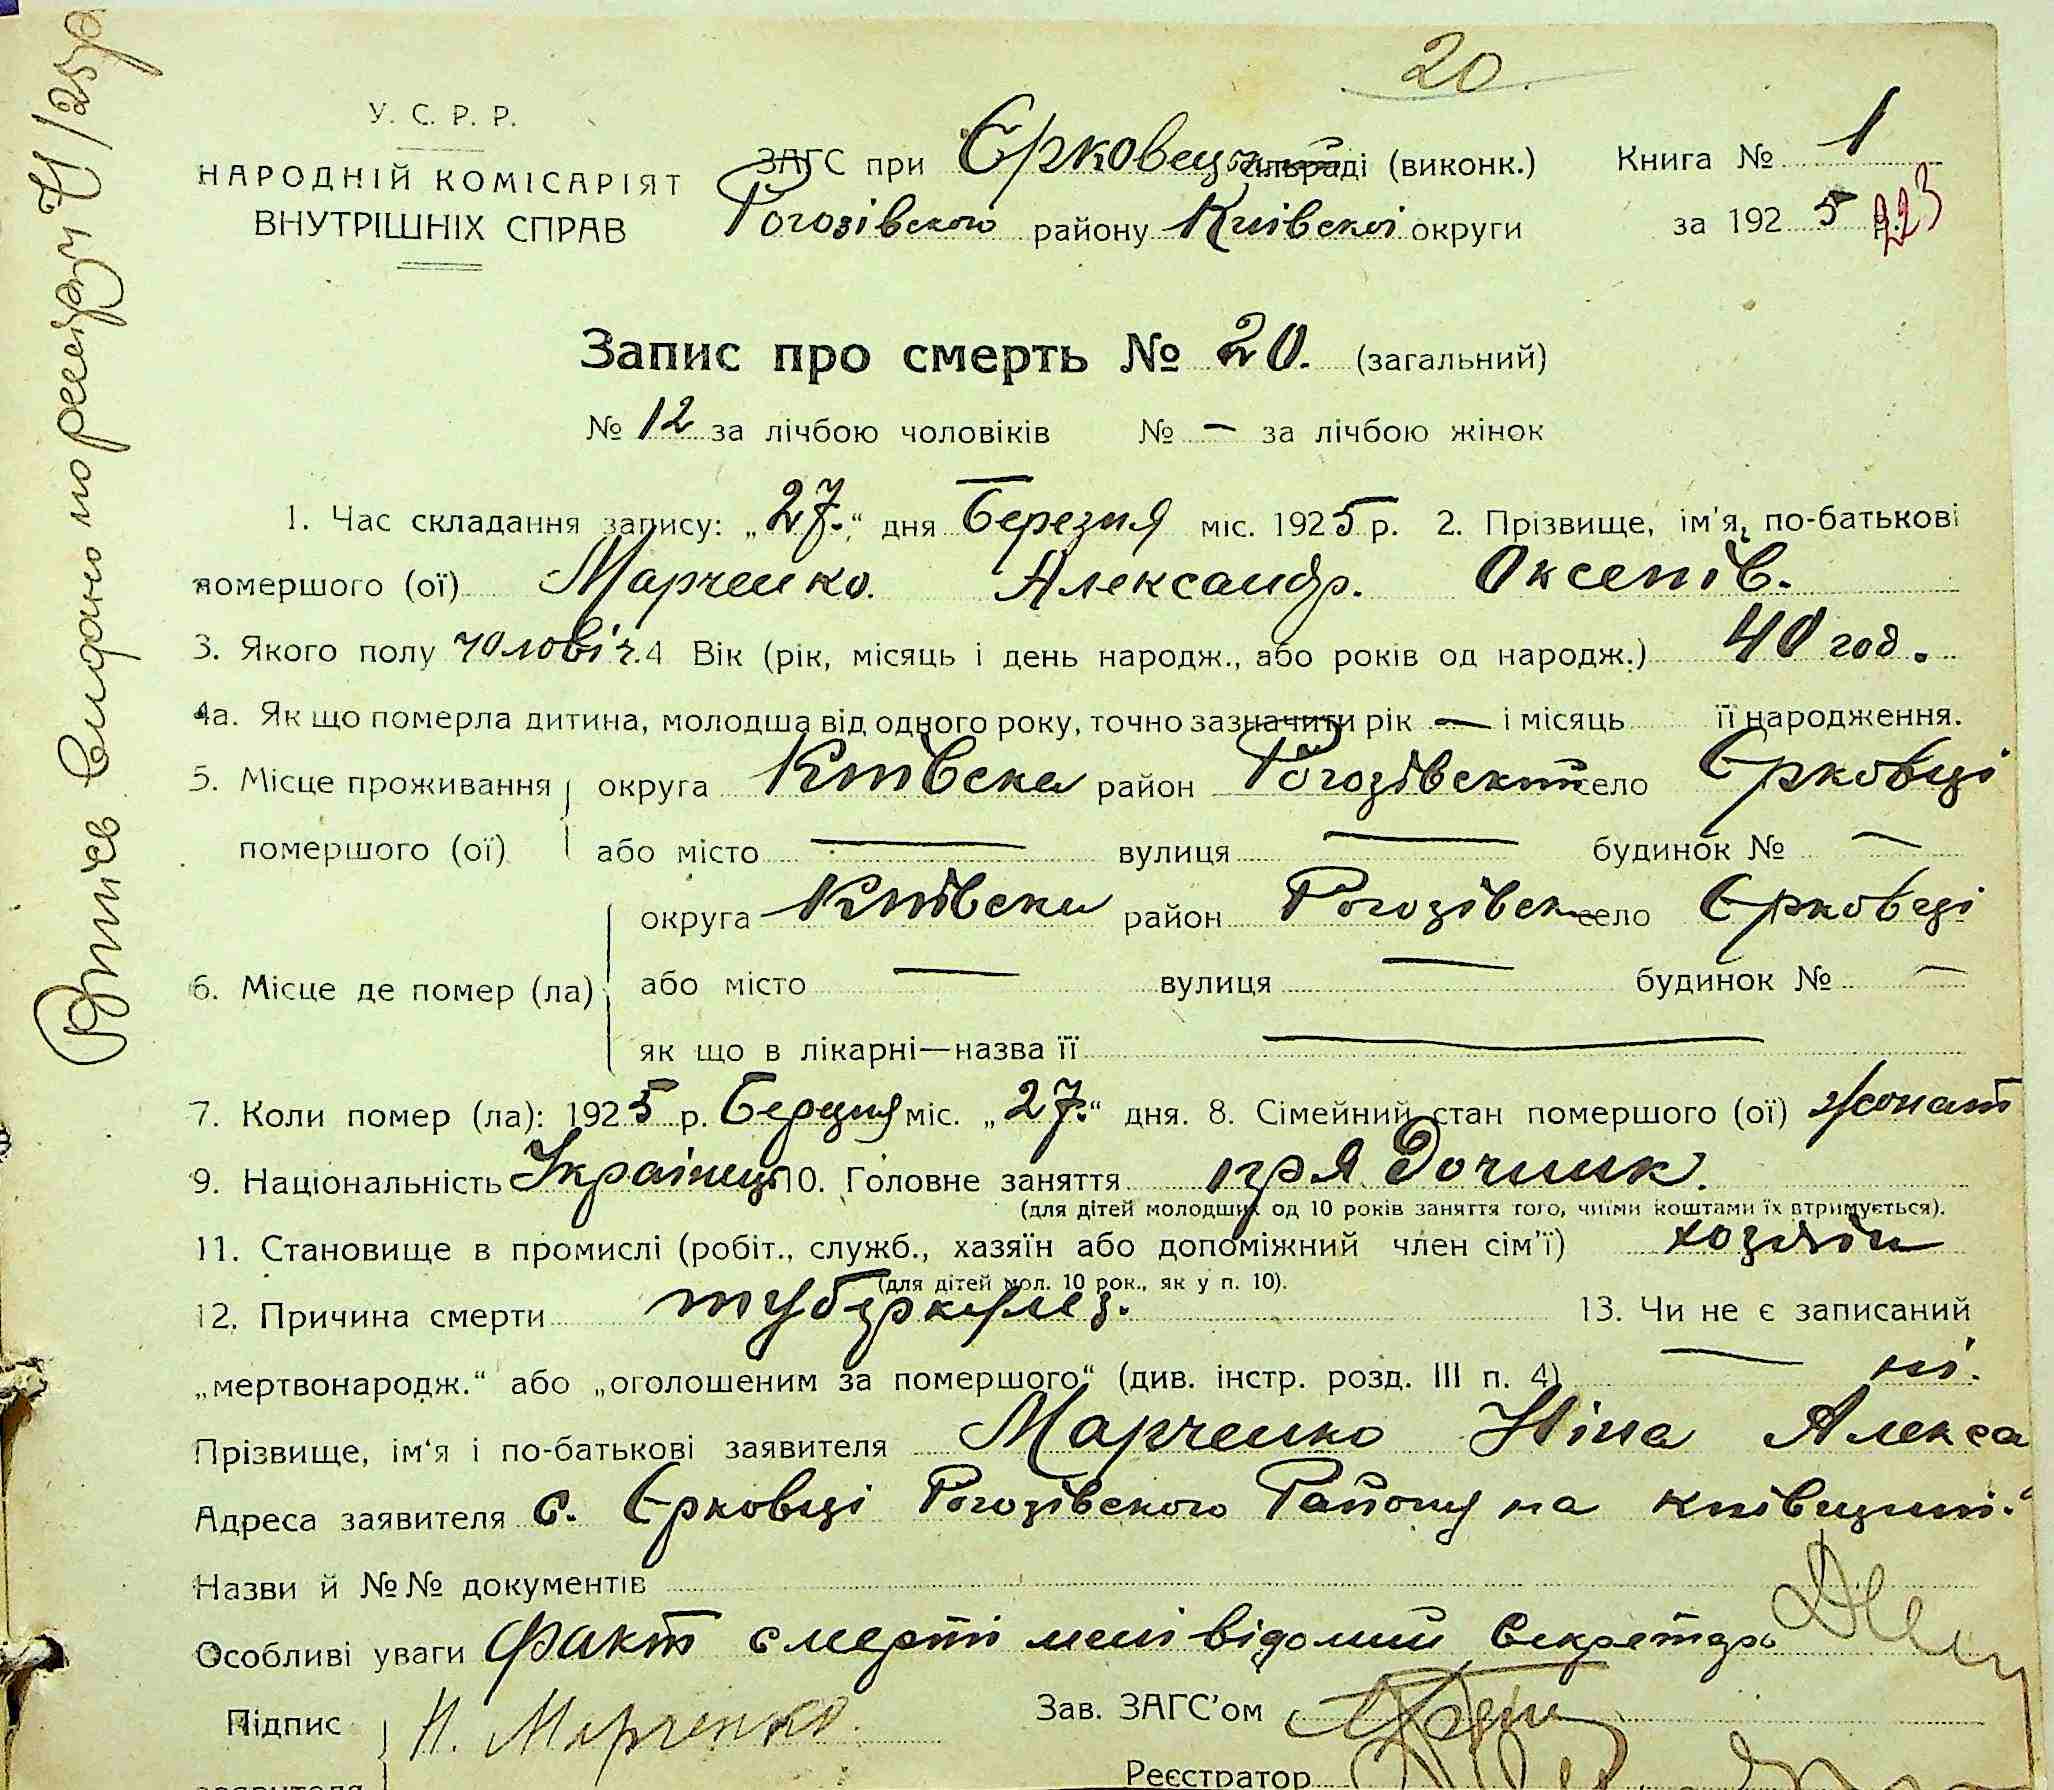 20.
У. С. Р. Р.
НАРОДНІЙ КОМІСАРІЯТ
ВНУТРІШНІХ СПРАВ
ЗАГС при Єрковецькій сільраді (виконк.) Книга № 1
Рогозівского району Київскоі округи за 1925 р. 223
Запис про смерть № 20. (загальний)
№ 12 за лічбою чоловіків № — за лічбою жінок
1. Час складання запису: „27.“ дня Березня міс. 1925 р. 2. Прізвище, ім'я, по-батькові
помершого (ої) Марченко. Александр. Оксентів.
3. Якого полу чоловіч. 4 Вік (рік, місяць і день народж., або років од народж.) 40 год.
4а. Як що померла дитина, молодша від одного року, точно зазначити рік — і місяць її народження.
5. Місце проживання округа Киівска район Рогозівский село Єрковці
помершого (ої) або місто — вулиця — будинок № —
округа Киівска район Рогозівск село Єрковці
6. Місце де помер (ла) або місто — вулиця — будинок № —
як що в лікарні—назва її —
7. Коли помер (ла): 1925 р. Березня міс. „27.“ дня. 8. Сімейний стан помершого (ої) жонат
9. Національність Украінець 10. Головне заняття
(для дітей молодших од 10 років заняття того, чиїми коштами їх втримується).
11. Становище в промислі (робіт., служб., хазяїн або допоміжний член сім'ї) хозяін
(для дітей мол. 10 рок., як у п. 10).
12. Причина смерти туберкулез. 13. Чи не є записаний
„мертвонародж.“ або „оголошеним за помершого“ (див. інстр. розд. III п. 4) — ні.
Прізвище, ім'я і по-батькові заявителя Марченко Ніна Алекса
Адреса заявителя с. Єрковці Рогозівского Району на Киівщині.
Назви й №№ документів
Особливі уваги Факт смерти мені відомий Секретарь
Підпис Н. Марченко. Зав. ЗАГС'ом
заявителя Реєстратор
видано по реєстру